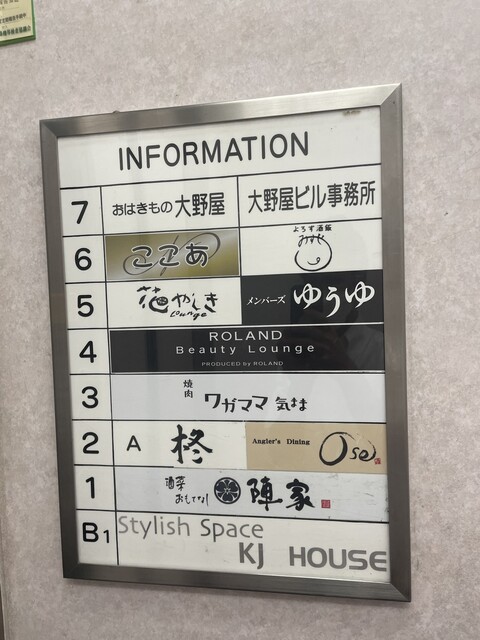 INFORMATION
7 おはきもの 大野屋 大野屋ビル事務所
6 ここあ よろず酒飯
5 花やしき Lounge メンバーズ ゆうゆ
4 ROLAND
Beauty Lounge
PRODUCED by ROLAND
3 焼肉 ワガママ 気まま
2 A 柊 Angler's Dining Ose
1 酒菜 おもてなし 陣家
B1 Stylish Space
KJ HOUSE